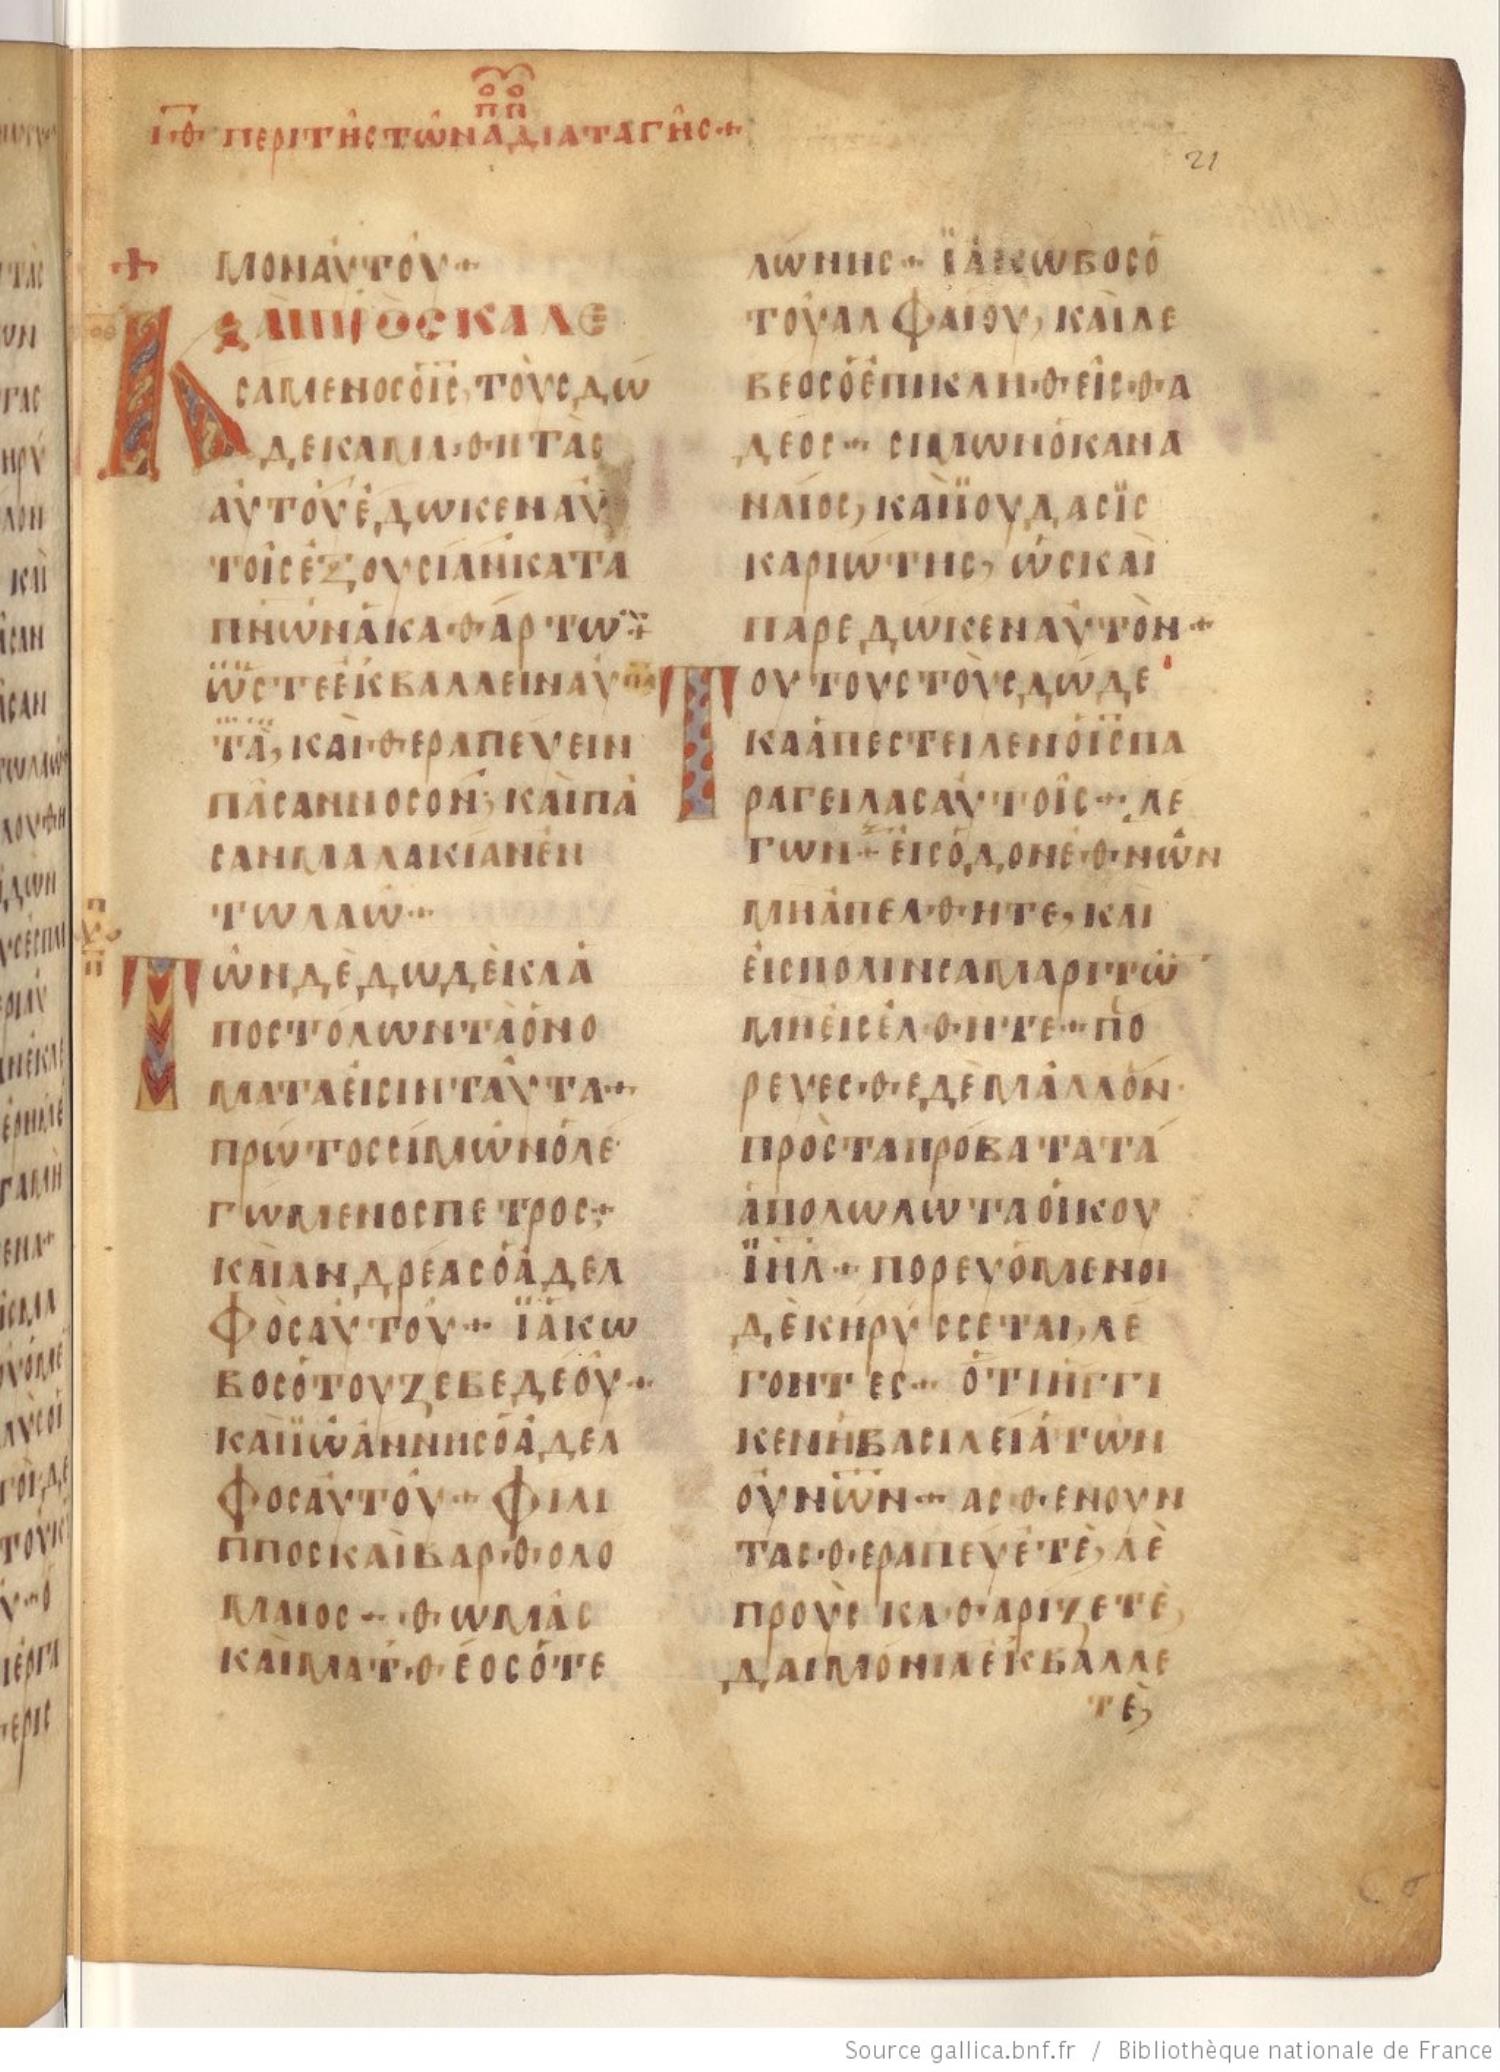 ΙΘ ΠΕΡΙ ΤΗΣ ΤΩΝ ΑΠΟΠ ΔΙΑΤΑΓΗΣ
21
ΜΟΝΑΥΤΟΥ+
ΚΑΙΠΡΟΣΚΑΛΕ
ϹΑΜΕΝΟϹΟΙϹ,ΤΟΥϹΔΩ
ΔΕΚΑΜΑΘΗΤΑϹ
ΑΥΤΟΥΕΔΩΚΕΝΑΥ
ΤΟΙϹΕΞΟΥϹΙΑΝΚΑΤΑ
ΠΝΩΝΑΚΑΘΑΡΤΩ+
ΩϹΤΕΕΚΒΑΛΛΕΙΝΑΥ
ΤΑ,ΚΑΙΘΕΡΑΠΕΥΕΙΝ
ΠΑϹΑΝΝΟϹΟΝ,ΚΑΙΠΑ
ϹΑΝΜΑΛΑΚΙΑΝΕΝ
ΤΩΛΑΩ+
ΤΩΝΔΕΔΩΔΕΚΑΑ
ΠΟϹΤΟΛΩΝΤΑΟΝΟ
ΜΑΤΑΕΙϹΙΝΤΑΥΤΑ+
ΠΡΩΤΟϹϹΙΜΩΝΟΛΕ
ΓΩΜΕΝΟϹΠΕΤΡΟϹ+
ΚΑΙΑΝΔΡΕΑϹΟΑΔΕΛ
ΦΟϹΑΥΤΟΥ+ ΪΑΚΩ
ΒΟϹΟΤΟΥΖΕΒΕΔΕΟΥ+
ΚΑΙΪΩΑΝΝΗϹΟΑΔΕΛ
ΦΟϹΑΥΤΟΥ+ ΦΙΛΙ
ΠΠΟϹΚΑΙΒΑΡΘΟΛΟ
ΜΑΙΟϹ+ ΘΩΜΑϹ
ΚΑΙΜΑΤΘΕΟϹΟΤΕ
ΛΩΝΗϹ+ ΪΑΚΩΒΟϹΟ
ΤΟΥΑΛΦΑΙΟΥ,ΚΑΙΛΕ
ΒΕΟϹΟΕΠΙΚΛΗΘΕΙϹΘΑ
ΔΕΟϹ+ ϹΙΜΩΝΟΚΑΝΑ
ΝΑΙΟϹ,ΚΑΙΪΟΥΔΑϹΙϹ
ΚΑΡΙΩΤΗϹ,ΩϹΚΑΙ
ΠΑΡΕΔΩΚΕΝΑΥΤΟΝ+
ΤΟΥΤΟΥϹΤΟΥϹΔΩΔΕ
ΚΑΑΠΕϹΤΕΙΛΕΝΟΙϹΠΑ
ΡΑΓΕΙΛΑϹΑΥΤΟΙϹ+ΛΕ
ΓΩΝ+ΕΙϹΟΔΟΝΕΘΝΩΝ
ΜΗΑΠΕΛΘΗΤΕ,ΚΑΙ
ΕΙϹΠΟΛΙΝϹΑΜΑΡΙΤΩ
ΜΗΕΙϹΕΛΘΗΤΕ+ΠΟ
ΡΕΥΕϹΘΕΔΕΜΑΛΛΟΝ
ΠΡΟϹΤΑΠΡΟΒΑΤΑΤΑ
ΑΠΟΛΩΛΩΤΑΟΙΚΟΥ
ΪΗΛ+ ΠΟΡΕΥΟΜΕΝΟΙ
ΔΕΚΗΡΥϹϹΕΤΑΙ,ΛΕ
ΓΟΝΤΕϹ+ ΟΤΙΗΓΓΙ
ΚΕΝΗΒΑϹΙΛΕΙΑΤΩΝ
ΟΥΝΩΝ+ ΑϹΘΕΝΟΥΝ
ΤΑϹΘΕΡΑΠΕΥΕΤΕ,ΛΕ
ΠΡΟΥϹΚΑΘΑΡΙΖΕΤΕ,
ΔΑΙΜΟΝΙΑΕΚΒΑΛΛΕ
ΤΕ,
Source gallica.bnf.fr / Bibliothèque nationale de France